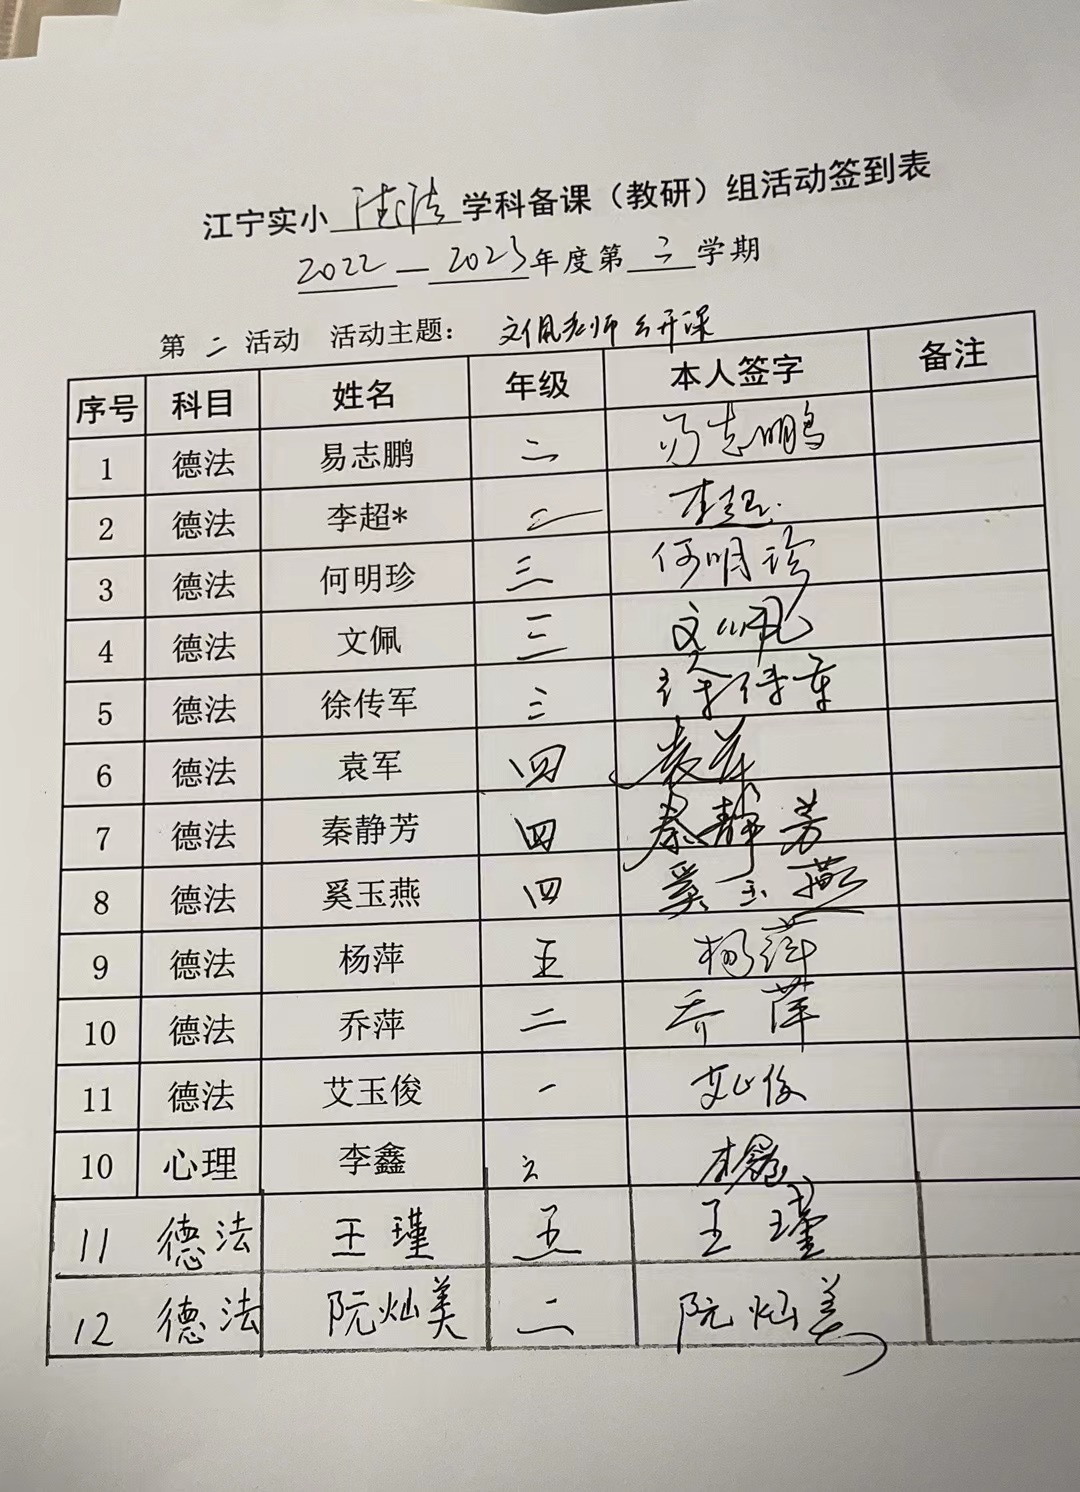 江宁实小 德法 学科备课（教研）组活动签到表
2022—2023年度第二学期
第二活动 活动主题：文佩老师公开课
序号 科目 姓名 年级 本人签字 备注
1 德法 易志鹏 二 易志鹏
2 德法 李超* 二 李超
3 德法 何明珍 三 何明珍
4 德法 文佩 三 文佩
5 德法 徐传军 三 徐传军
6 德法 袁军 四 袁军
7 德法 秦静芳 四 秦静芳
8 德法 奚玉燕 四 奚玉燕
9 德法 杨萍 五 杨萍
10 德法 乔萍 二 乔萍
11 德法 艾玉俊 一 艾玉俊
10 心理 李鑫 二 李鑫
11 德法 王瑾 五 王瑾
12 德法 阮灿美 二 阮灿美